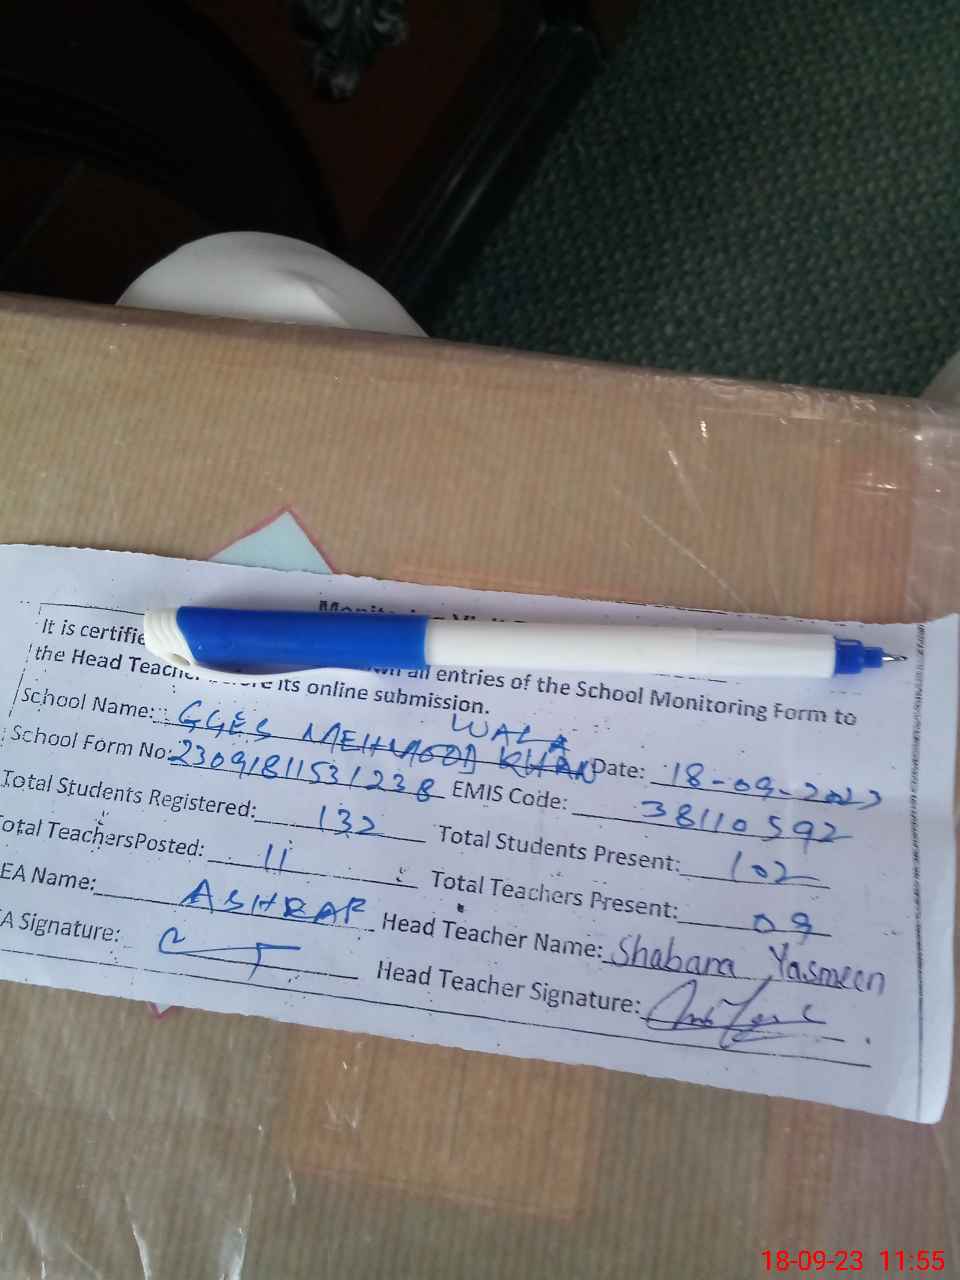 It is certifie all entries of the School Monitoring Form to
the Head Teacher before its online submission.
School Name: GGES MEHMOOD KHAN WALA Date: 18-09-2023
School Form No: 23091811531238 EMIS Code: 38110592
Total Students Registered: 132 Total Students Present: 102
Total TeachersPosted: 11 Total Teachers Present: 09
EA Name: ASHRAF Head Teacher Name: Shabana Yasmeen
A Signature: Head Teacher Signature:
18-09-23 11:55